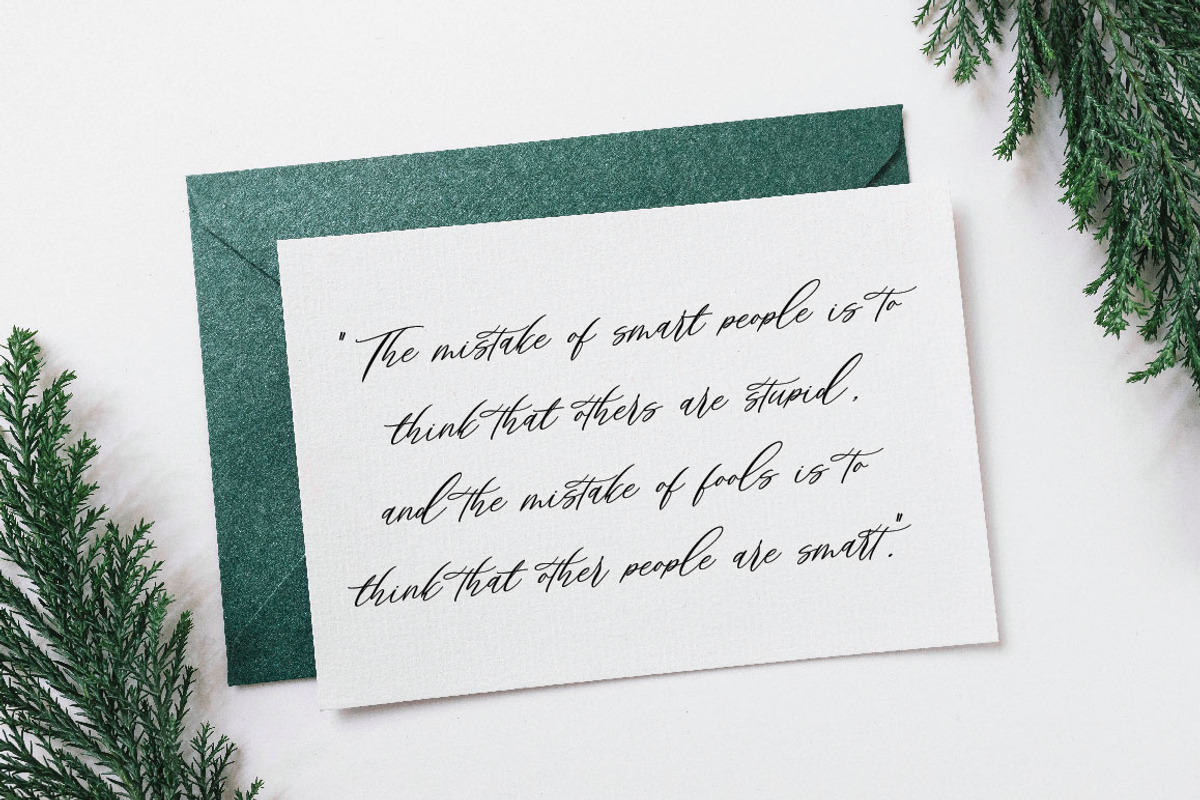 "The mistake of smart people is to
think that others are stupid,
and the mistake of fools is to
think that other people are smart."